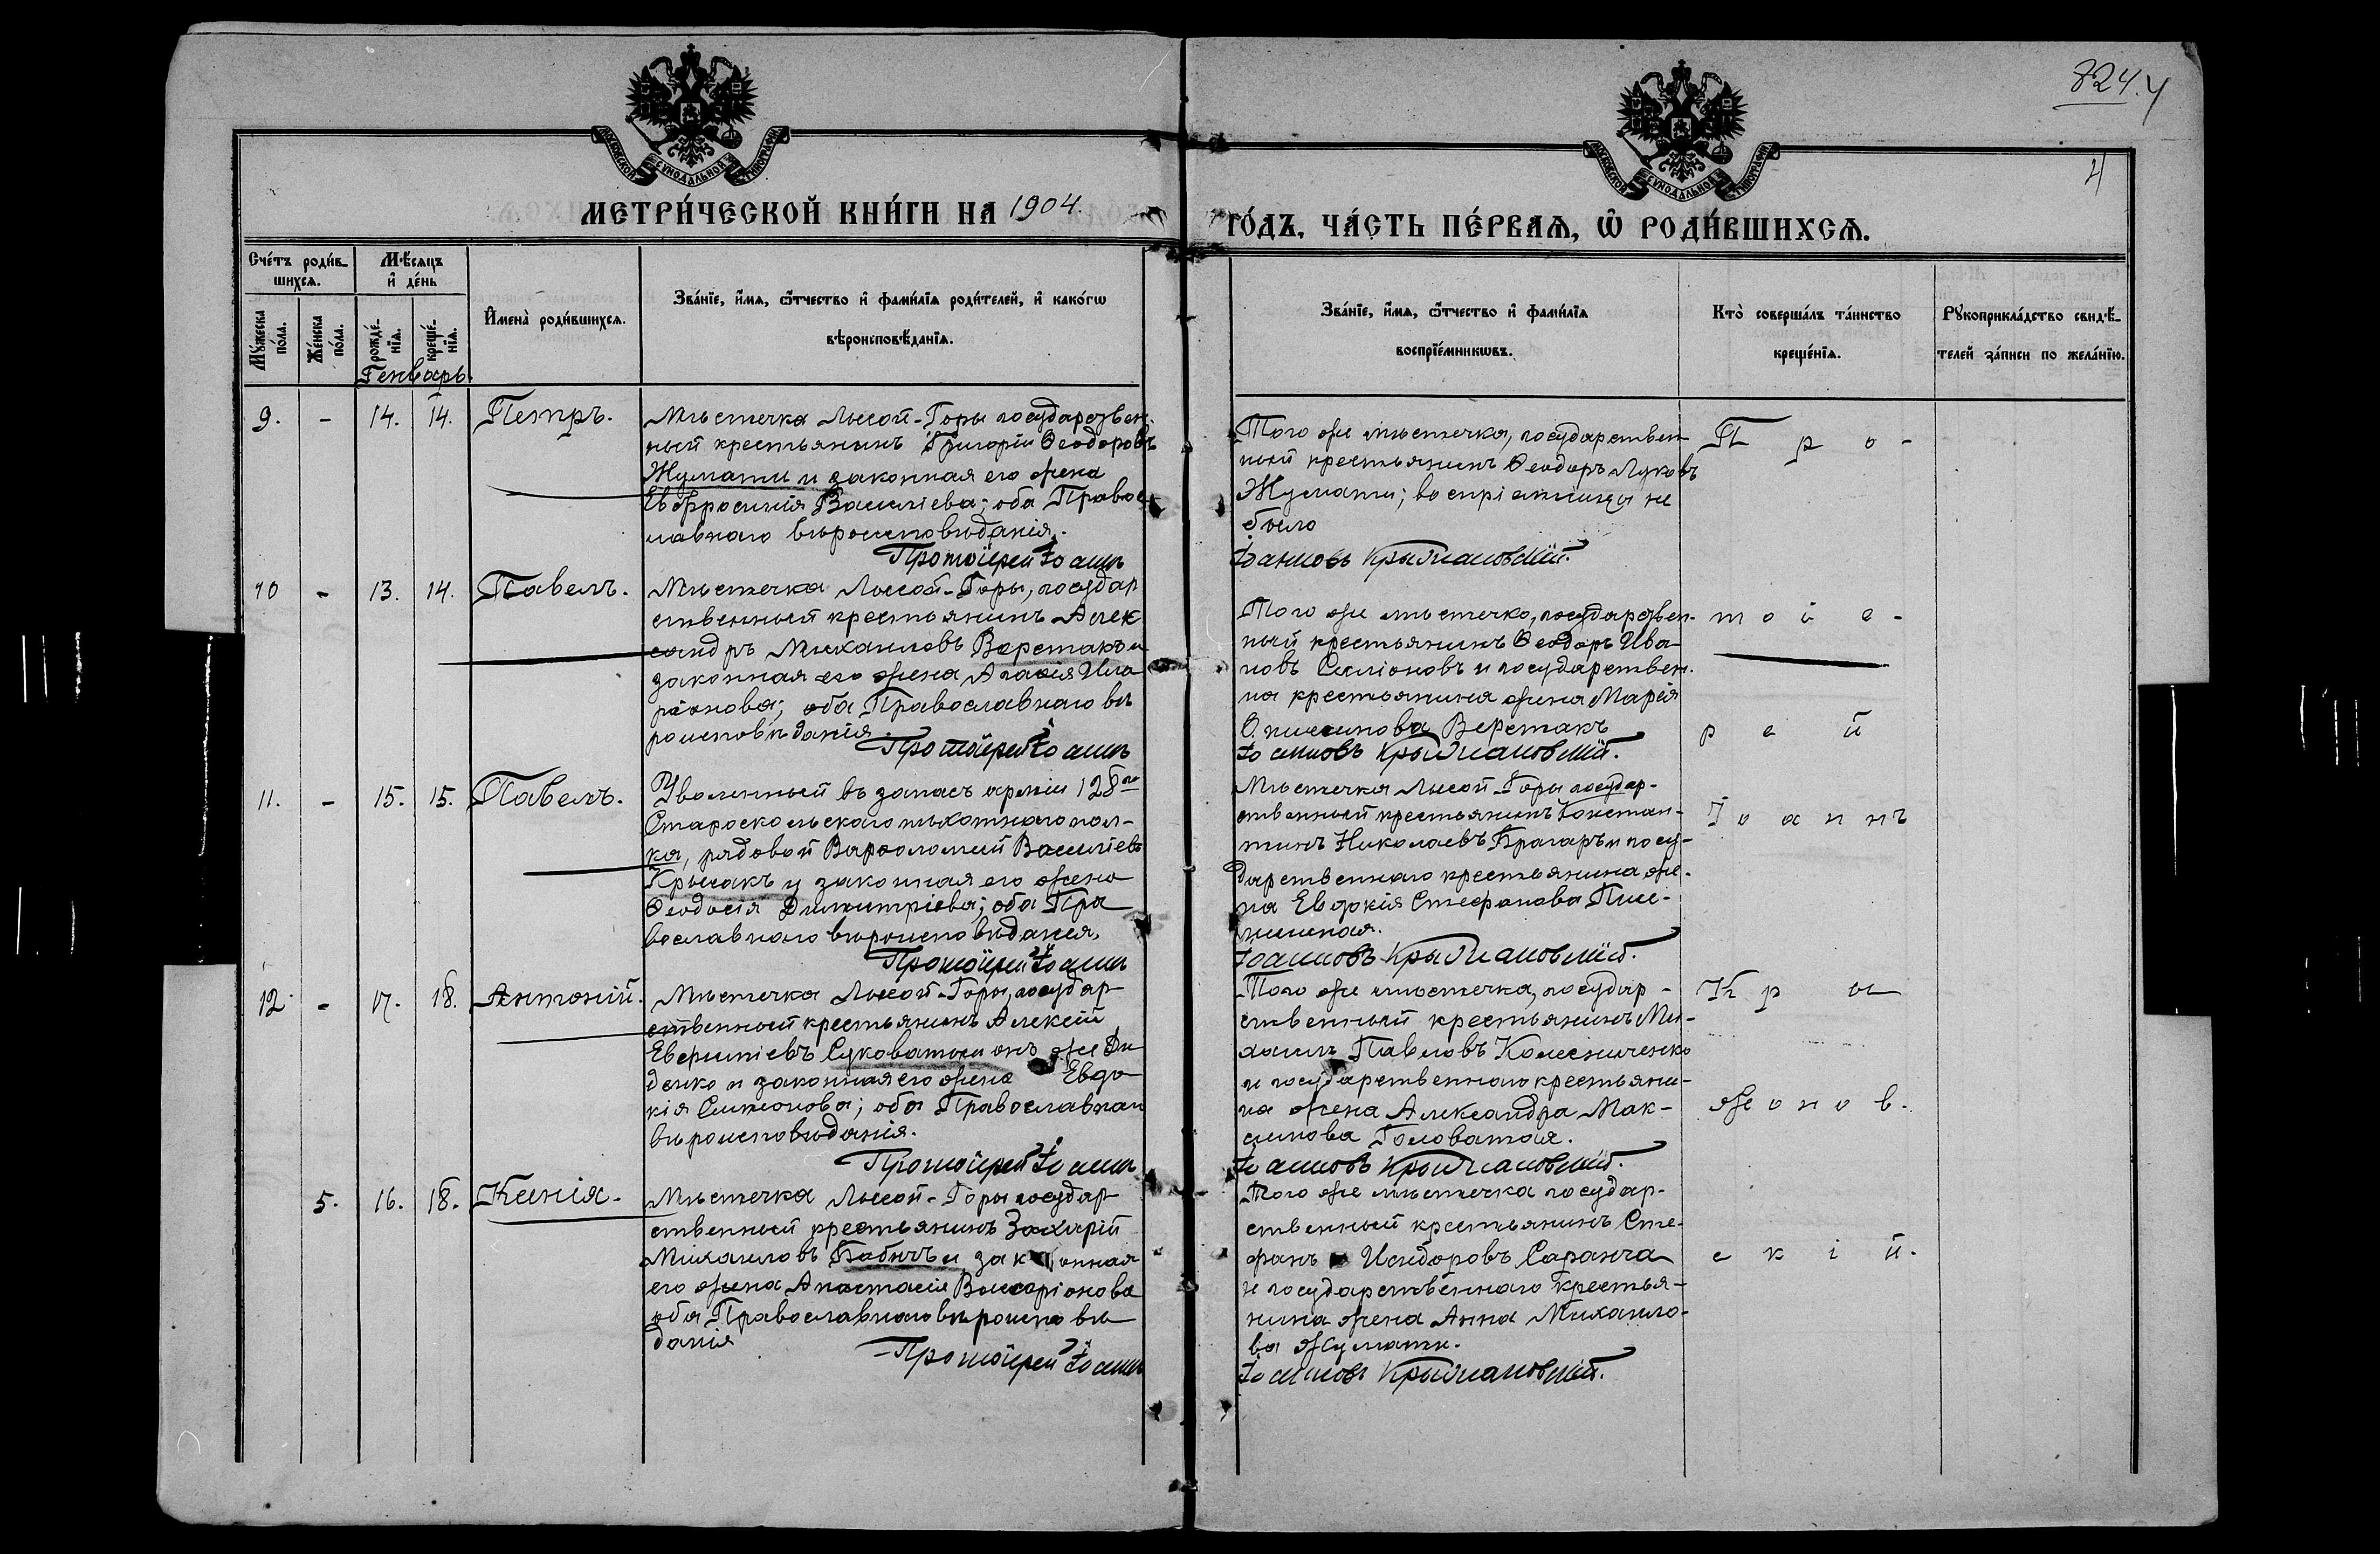 824. 4
4
МОСКОВСКОЙ СѴНОДАЛЬНОЙ ТИПОГРАФІИ
МОСКОВСКОЙ СѴНОДАЛЬНОЙ ТИПОГРАФІИ
МЕТРИ́ЧЕСКОЙ КНИ́ГИ НА 1904.
ГО́ДЪ, ЧА́СТЬ ПЕ́РВАѦ, Ѽ РОДИ́ВШИХСѦ.
Сче́тъ роди́в-
шихсѧ.
Мѣ́сѧцъ
и҆ де́нь
Мꙋ́жеска
по́ла.
Же́нска
по́ла.
рожде́-
нїѧ.
креще́-
нїѧ.
Генварь.
И҆мена̀ роди́вшихсѧ.
Зва́нїе, и҆́мѧ, ѻ҆́тчество и҆ фами́лїѧ роди́телей, и҆ како́гѡ
вѣроисповѣ́данїѧ.
Зва́нїе, и҆́мѧ, ѻ҆́тчество и҆ фами́лїѧ
воспрїе́мникѡвъ.
Кто̀ соверша́лъ та́инство
креще́нїѧ.
Рꙋкоприкла́дство свидѣ́-
телей за́писи по жела́нїю.
9. - 14. 14. Петръ.
Мѣстечка Лысой-Горы государствен-
ный крестьянинъ Григорій Ѳеодоровъ
Жумати и законная его жена
Евфросинія Василіева; оба Правос
лавнаго вѣроисповѣданія.
Протоіерей Іоаннъ
Того же мѣстечка, государствен-
ный крестьянинъ Ѳеодоръ Луковъ
Жумати; воспріемницы не
было
Іоанновъ Крыжановскій.
П р о -
10 - 13. 14. Павелъ.
Мѣстечка Лысой-Горы, государ
ственный крестьянинъ Алек
сандръ Михаиловъ Верстакъ и
законная его жена Агаѳія Ила
ріонова; оба Православнаго вѣ
роисповѣданія.
Протоіерей Іоаннъ
Того же мѣстечко, государствен-
ный крестьянинъ Ѳеодоръ Ива
новъ Силіоновъ и государствен-
на крестьянина жена Марія
Верстакъ
Іоанновъ Крыжановскій.
т о і е -
р е й
11. - 15. 15. Павелъ.
Уволенный въ запасъ арміи 128го
Старооскольскаго пѣхотнаго пол-
ка, рядовой Варѳоломей Василіевъ
Крысакъ и законная его жена
Ѳеодосія Димитріева; оба Пра
вославнаго вѣроисповѣданія.
Протоіерей Іоаннъ
Мѣстечка Лысой-Горы государ-
ственный крестьянинъ Констан-
тинъ Николаевъ Брагаръ и госу-
дарственнаго крестьянина же-
на Евдокія Стефанова
Іоанновъ Крыжановскій.
І о а н н ъ
12. - 17. 18. Антоній.
Мѣстечка Лысой-Горы, государ-
ственный крестьянинъ Алексій
Суковатый онъ же Ди
денко и законная его жена Евдо
кія Симеонова; оба Православнаго
вѣроисповѣданія.
Протоіерей Іоаннъ
Того же мѣстечка, государ-
ственный крестьянинъ Ми-
хаилъ Павловъ Колесниченко
и государственнаго крестьяни-
на жена Александра Мак-
симова Головатая.
Іоанновъ Крыжановскій.
К р ы
ж а н о в -
5. 16. 18. Ксенія.
Мѣстечка Лысой-Горы государ
ственный крестьянинъ Захарій
Михаиловъ Бабичъ и законная
его жена Анастасія Виссаріонова
оба Православнаго вѣроисповѣ
данія
Протоіерей Іоаннъ
Того же мѣстечка государ-
ственный крестьянинъ Сте-
фанъ Исидоровъ Саранча
и государственнаго крестья-
нина жена Анна Михаило-
ва Жумати.
Іоанновъ Крыжановскій.
с к і й.